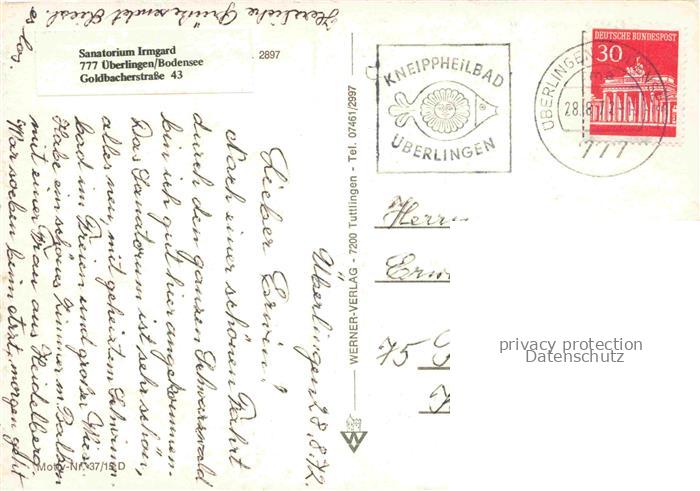 Sanatorium Irmgard
777 Überlingen/Bodensee
Goldbacherstraße 43
2897
KNEIPPHEILBAD
ÜBERLINGEN
DEUTSCHE BUNDESPOST
30
ÜBERLINGEN
28.8.
777
Überlingen 28.8.72.
Lieber Erwin!
Nach einer schönen Fahrt
durch den ganzen Schwarzwald
bin ich gut hier angekommen.
Das Sanatorium ist sehr schön,
alles neu, mit geheiztem Schwimm
bad im Freien und großer Wiese.
Habe ein schönes Zimmer m. Balkon
mit einer Frau aus Heidelberg.
War soeben beim Arzt, morgen geht
's los.
Herzliche Grüße sendet
WERNER-VERLAG - 7200 Tuttlingen - Tel. 07461/2997
Motiv-Nr. 37/15 D
Herrn
Erw
75
privacy protection
Datenschutz